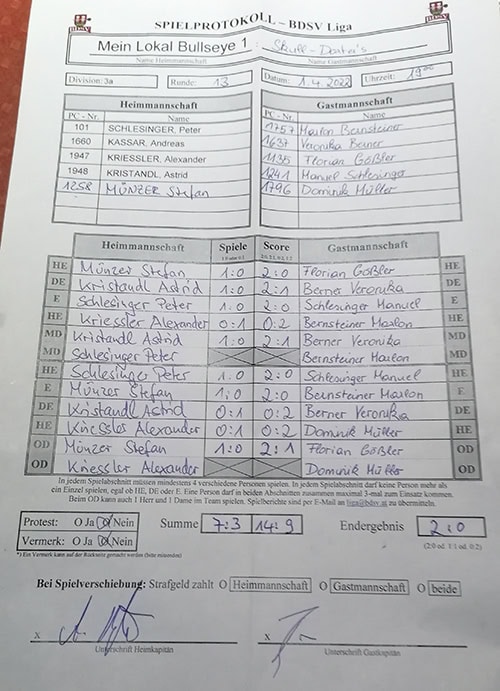 SPIELPROTOKOLL – BDSV Liga
Mein Lokal Bullseye 1 : Skull-Darta's
Name Heimmannschaft Name Gastmannschaft
Division: 3a Runde: 13 Datum: 1.4.2022 Uhrzeit: 19°°
Heimmannschaft Gastmannschaft
PC - Nr. Name PC - Nr. Name
101 SCHLESINGER, Peter 1757 Marlon Bernsteiner
1660 KASSAR, Andreas 1637 Veronika Berner
1947 KRIESSLER, Alexander 1135 Florian Gößler
1948 KRISTANDL, Astrid 1241 Manuel Schlesinger
1258 MÜNZER Stefan 1796 Dominik Müller
Heimmannschaft Spiele Score Gastmannschaft
HE Münzer Stefan 1:0 2:0 Florian Gößler HE
DE Kristandl Astrid 1:0 2:1 Berner Veronika DE
E Schlesinger Peter 1:0 2:0 Schlesinger Manuel E
HE Kriessler Alexander 0:1 0:2 Bernsteiner Marlon HE
MD Kristandl Astrid 1:0 2:1 Berner Veronika MD
MD Schlesinger Peter Bernsteiner Marlon MD
HE Schlesinger Peter 1:0 2:0 Schlesinger Manuel HE
E Münzer Stefan 1:0 2:0 Bernsteiner Marlon E
DE Kristandl Astrid 0:1 0:2 Berner Veronika DE
HE Kriessler Alexander 0:1 0:2 Dominik Müller HE
OD Münzer Stefan 1:0 2:1 Florian Gößler OD
OD Kriessler Alexander Dominik Müller OD
In jedem Spielabschnitt müssen mindestens 4 verschiedene Personen spielen. In jedem Spielabschnitt darf keine Person mehr als
ein Einzel spielen, egal ob HE, DE oder E. Eine Person darf in beiden Abschnitten zusammen maximal 3-mal zum Einsatz kommen.
Beim OD kann auch 1 Herr und 1 Dame im Team spielen. Spielberichte sind per E-Mail an liga@bdsv.at zu übermitteln.
Protest: O Ja O Nein Summe 7:3 14:9 Endergebnis 2:0
Vermerk: O Ja O Nein (2:0 od. 1:1 od. 0:2)
*) Ein Vermerk kann auf der Rückseite gemacht werden (bitte umwenden)
Bei Spielverschiebung: Strafgeld zahlt O Heimmannschaft O Gastmannschaft O beide
x x
Unterschrift Heimkapitän Unterschrift Gastkapitän